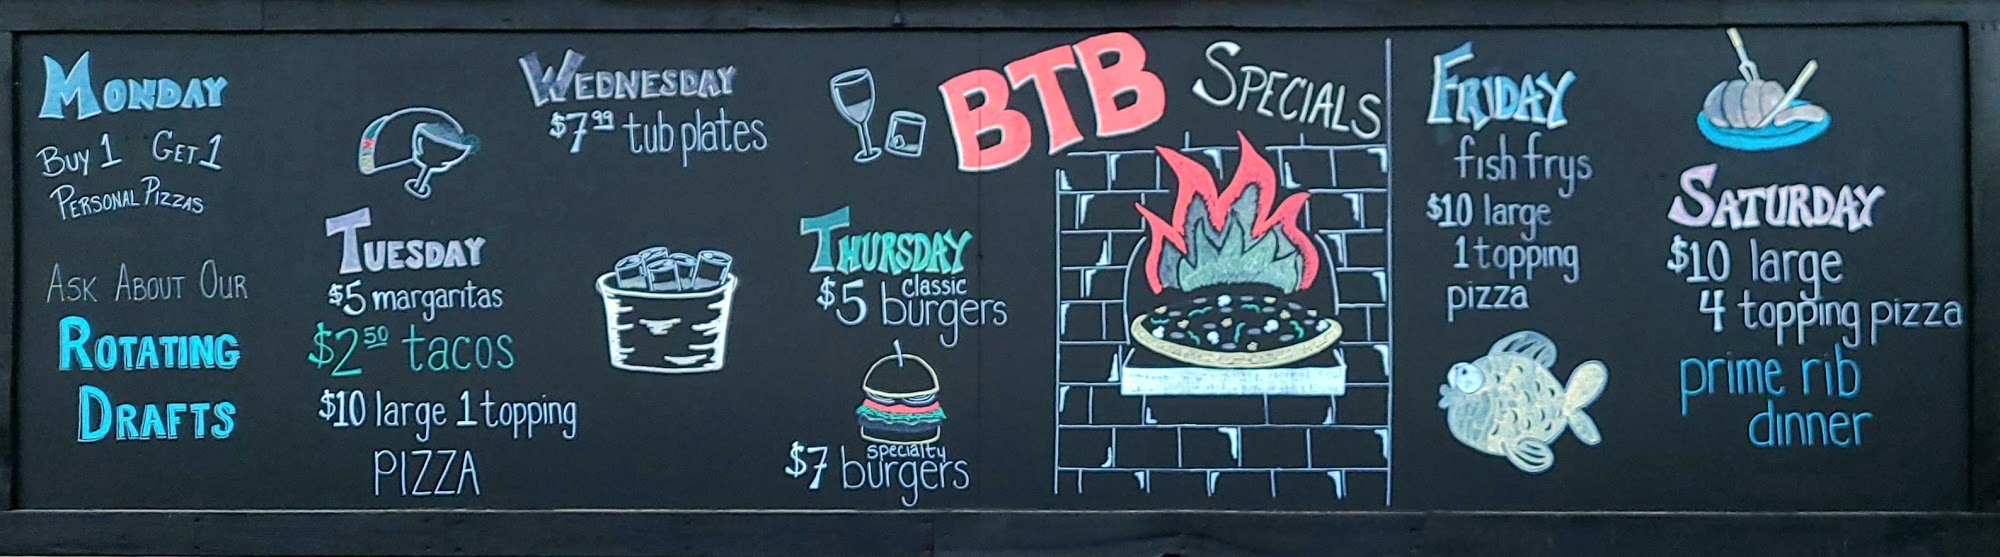 MONDAY
BUY 1 GET 1
PERSONAL PIZZAS
ASK ABOUT OUR
ROTATING
DRAFTS
TUESDAY
$5 margaritas
$2.50 tacos
$10 large 1 topping
PIZZA
WEDNESDAY
$7.99 tub plates
THURSDAY
$5 classic burgers
$7 specialty burgers
BTB SPECIALS
FRIDAY
fish frys
$10 large
1 topping
pizza
SATURDAY
$10 large
4 topping pizza
prime rib
dinner